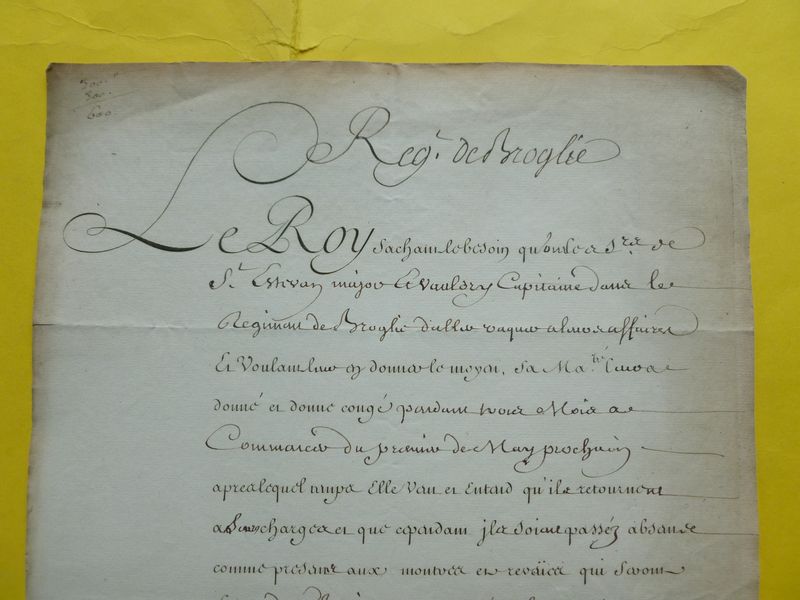 300.
300.
600.
Reg.t de Broglie
Le Roy sachant le besoin qu'ont les S.rs de
S.t Estevan major Et Vauldry Capitaine dans le
Regiment de Broglie d'aller vaquer a leurs affaires
Et Voulant leur en donner le moyen, Sa Ma.té leur a
donné et donne congé pendant trois Mois a
Commancer du premier de May prochain
apres lequel temps Elle Veut et Entend qu'ils retournent
a leurs charges et que cependant jls soient passéz absens
comme presens aux montres et reveües qui seront